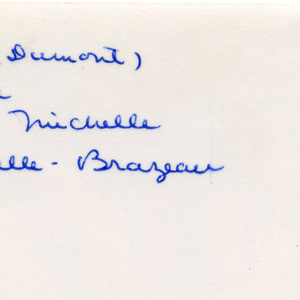 Dumont)
Michelle
lle - Brazeau